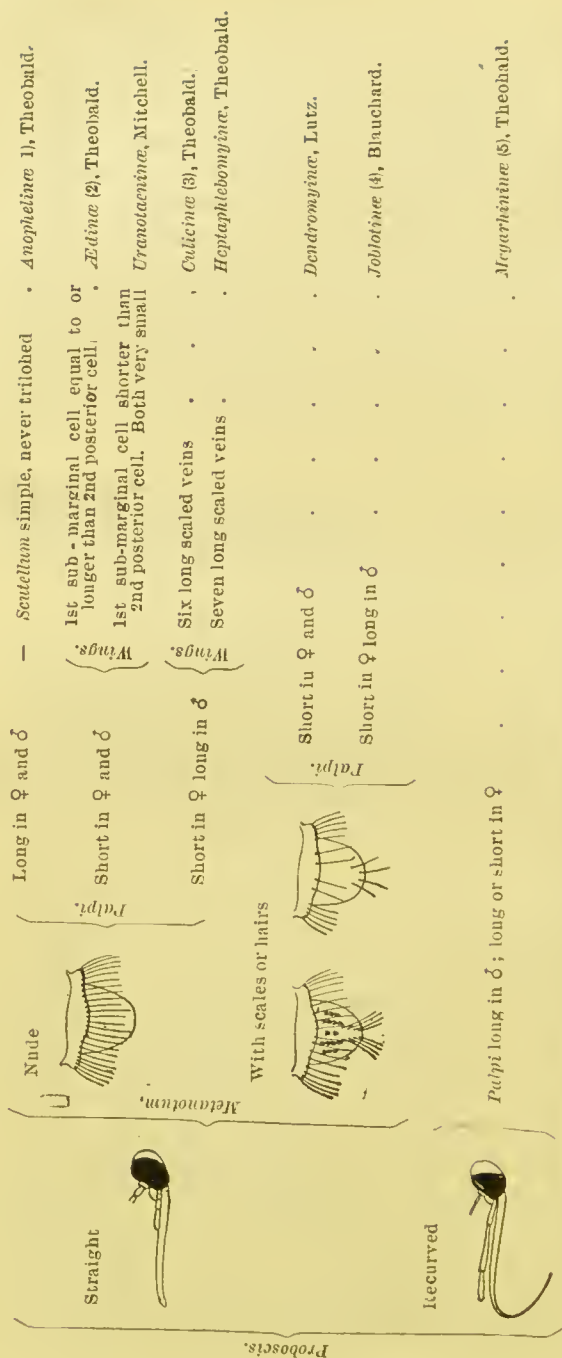 Proboscis.
Straight
Metanotum.
Nude
Palpi.
Long in ♀ and ♂
— Scutellum simple, never trilohed . Anophelinæ 1), Theobald.
Short in ♀ and ♂
Wings.
1st sub-marginal cell equal to or
longer than 2nd posterior cell. . Ædinæ (2), Theobald.
1st sub-marginal cell shorter than
2nd posterior cell. Both very small Uranotaeninæ, Mitchell.
Short in ♀ long in ♂
Wings.
Six long scaled veins . . . Culicinæ (3), Theobald.
Seven long scaled veins . . Heptaphlebomyinæ, Theobald.
With scales or hairs
Palpi.
Short in ♀ and ♂ . . . . . Dendromyinæ, Lutz.
Short in ♀ long in ♂ . . . . . Joblotinæ (4), Blauchard.
Recurved
Palpi long in ♂; long or short in ♀ . . . . . . . Megarhininæ (5), Theobald.